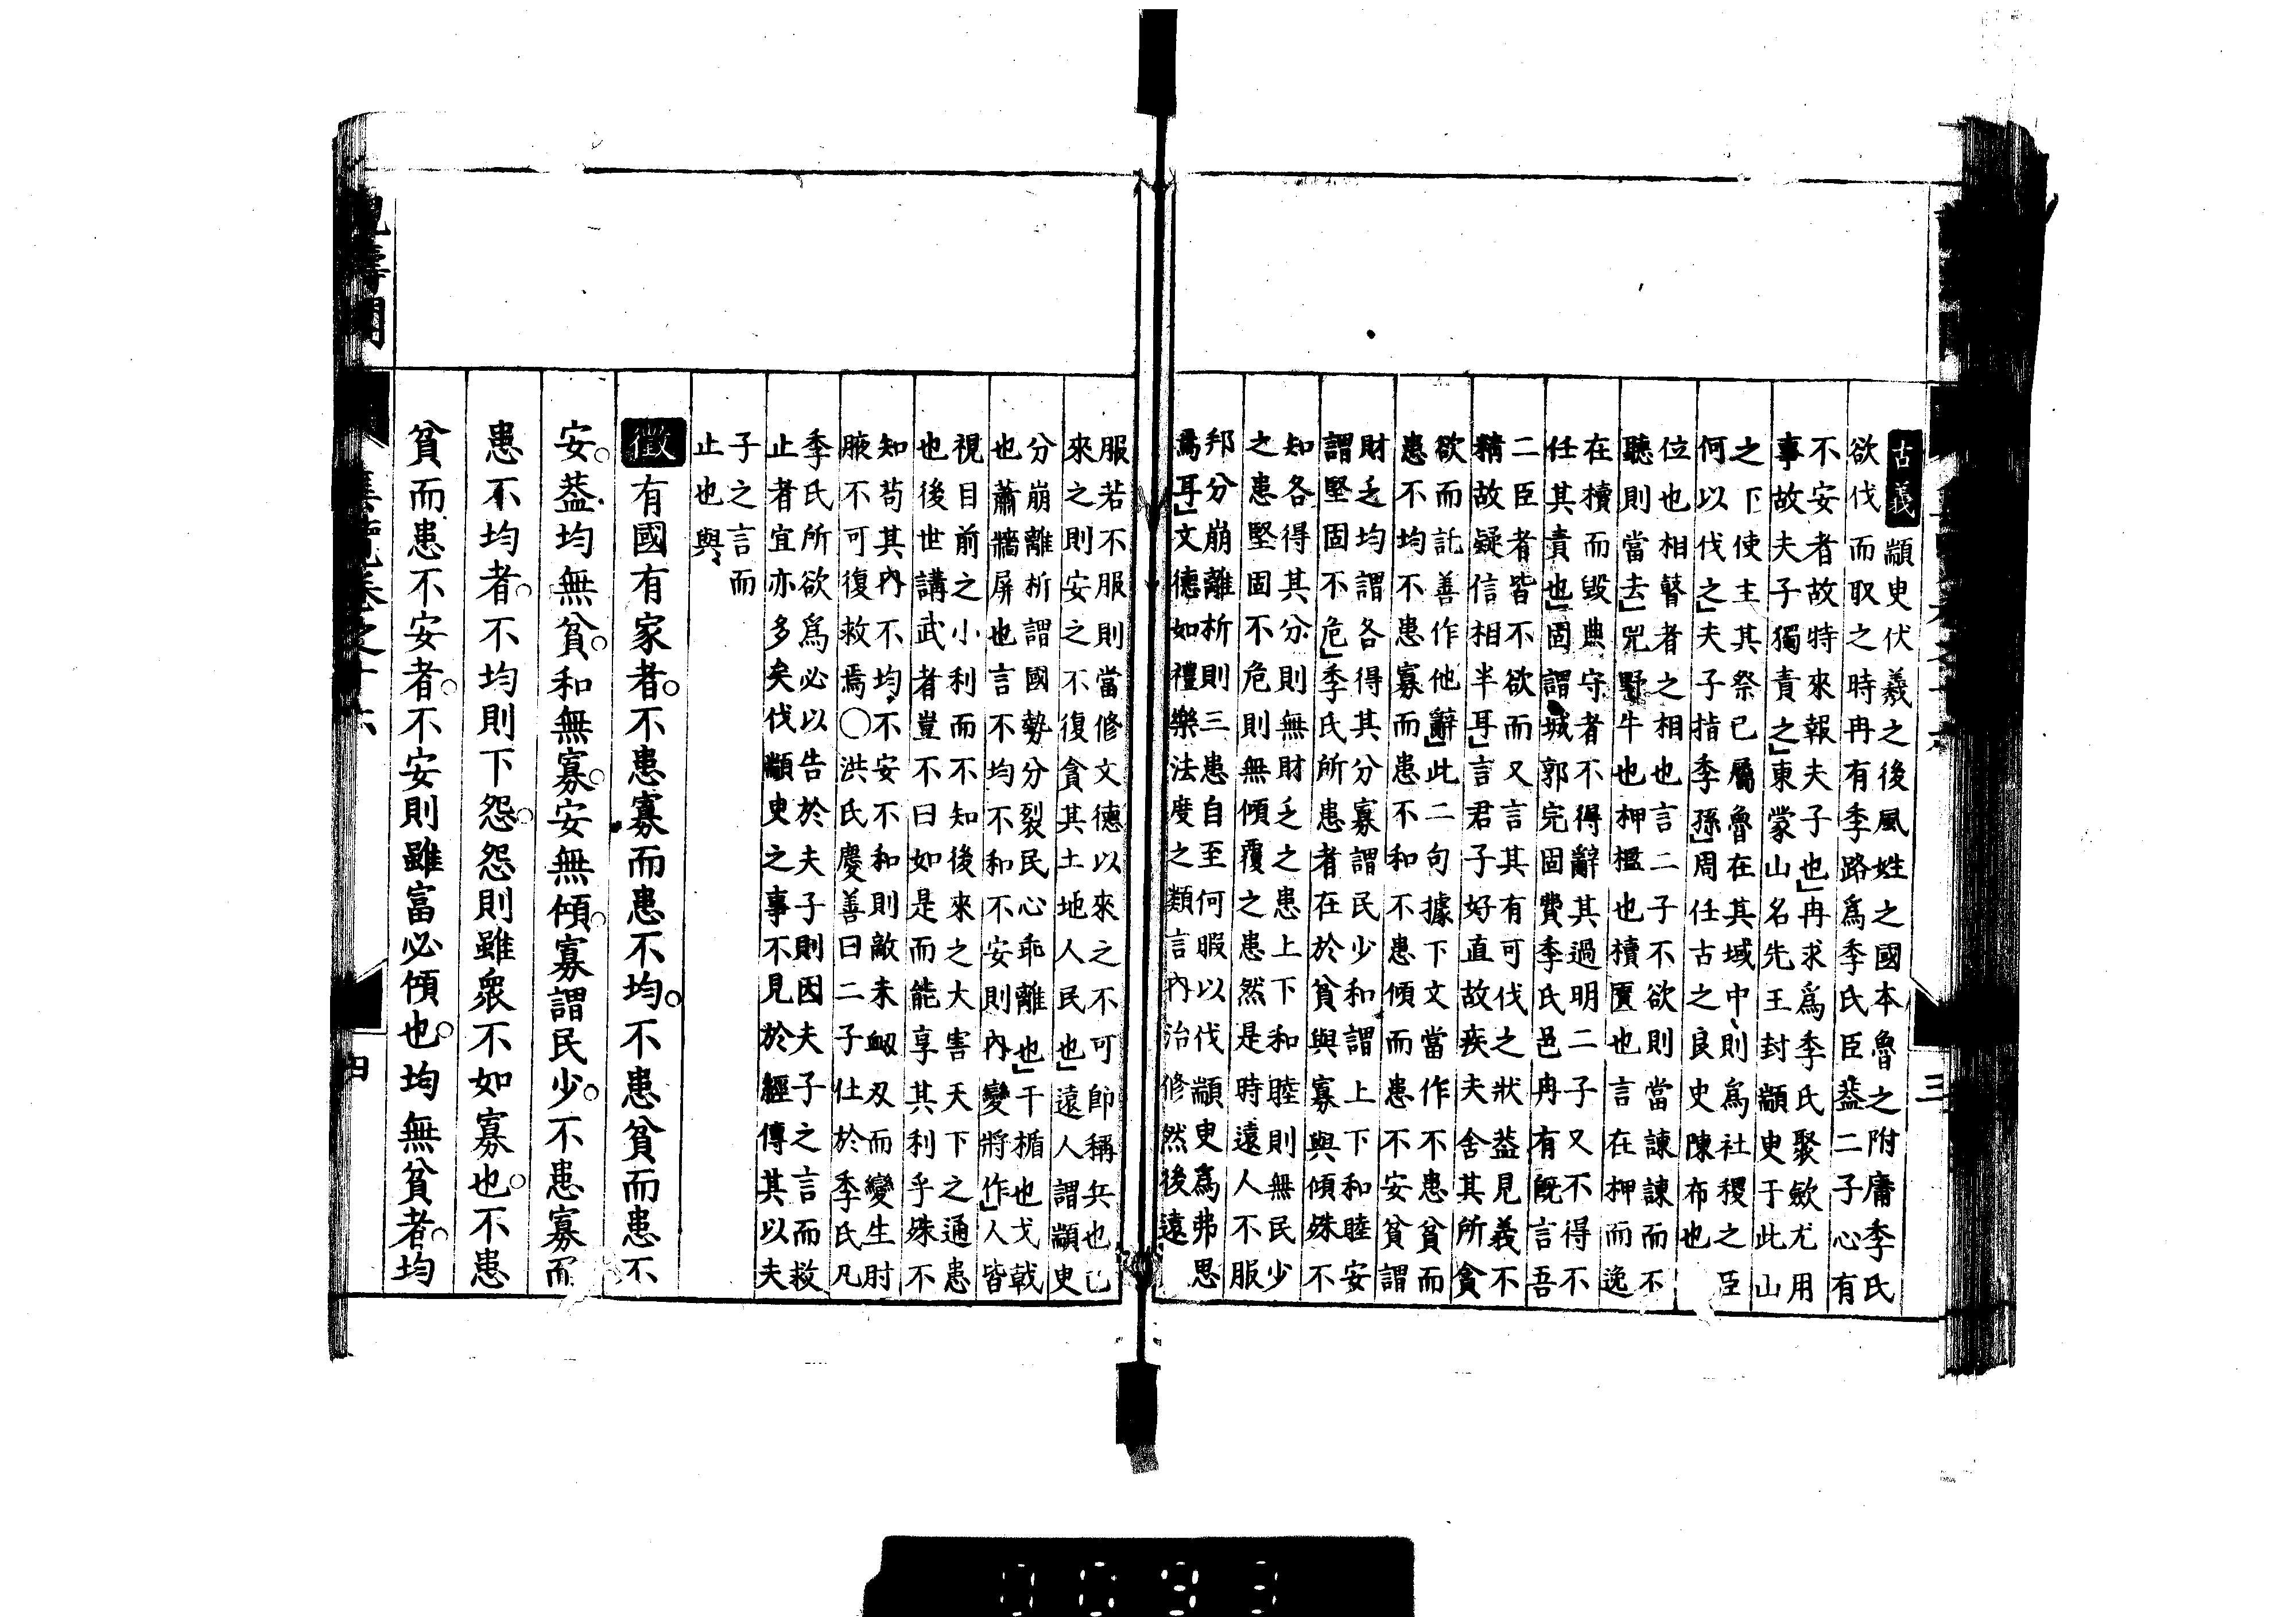 古義
顓臾伏羲之後風姓之國本魯之附庸季氏
欲伐而取之時冉有季路爲季氏臣葢二子心有
不安者故特來報夫子也」冉求爲季氏聚歛尤用
事故夫子獨責之」東蒙山名先王封顓臾于此山
之下使主其祭已屬魯在其域中則爲社稷之臣
何以伐之」夫子指季孫」周任古之良史陳布也
位也相瞽者之相也言二子不欲則當諫諫而不
聽則當去」兕野牛也柙檻也櫝匱也言在柙而逸
在櫝而毀典守者不得辭其過明二子又不得不
任其責也」固謂城郭完固費季氏邑冉有旣言吾
二臣者皆不欲而又言其有可伐之狀葢見義不
精故疑信相半耳」言君子好直故疾夫舍其所貪
欲而託善作他辭」此二句據下文當作不患貧而
患不均不患寡而患不和不患傾而患不安貧謂
財乏均謂各得其分寡謂民少和謂上下和睦安
謂堅固不危」季氏所患者在於貧與寡與傾殊不
知各得其分則無財乏之患上下和睦則無民少
之患堅固不危則無傾覆之患然是時遠人不服
邦分崩離析則三患自至何暇以伐顓臾爲弗思
爲耳」文德如禮樂法度之類言內治修然後遠
服若不服則當修文德以來之不可卽稱兵也已
來之則安之不復貪其土地人民也」遠人謂顓臾
分崩離析謂國勢分裂民心乖離也」干楯也戈戟
也蕭牆屏也言不均不和不安則內變將作」人皆
視目前之小利而不知後來之大害天下之通患
也後世講武者豈不曰如是而能享其利乎殊不
知苟其內不均不安不和則敵未衂刄而變生肘
腋不可復救焉○洪氏慶善曰二子仕於季氏凡
季氏所欲爲必以告於夫子則因夫子之言而救
止者宜亦多矣伐顓臾之事不見於經傳其以夫
子之言而
止也與
徵
有國有家者不患寡而患不均不患貧而患不
安葢均無貧和無寡安無傾寡謂民少不患寡而
患不均者不均則下怨怨則雖衆不如寡也不患
貧而患不安者不安則雖富必傾也均無貧者均
集覽卷之十六
三